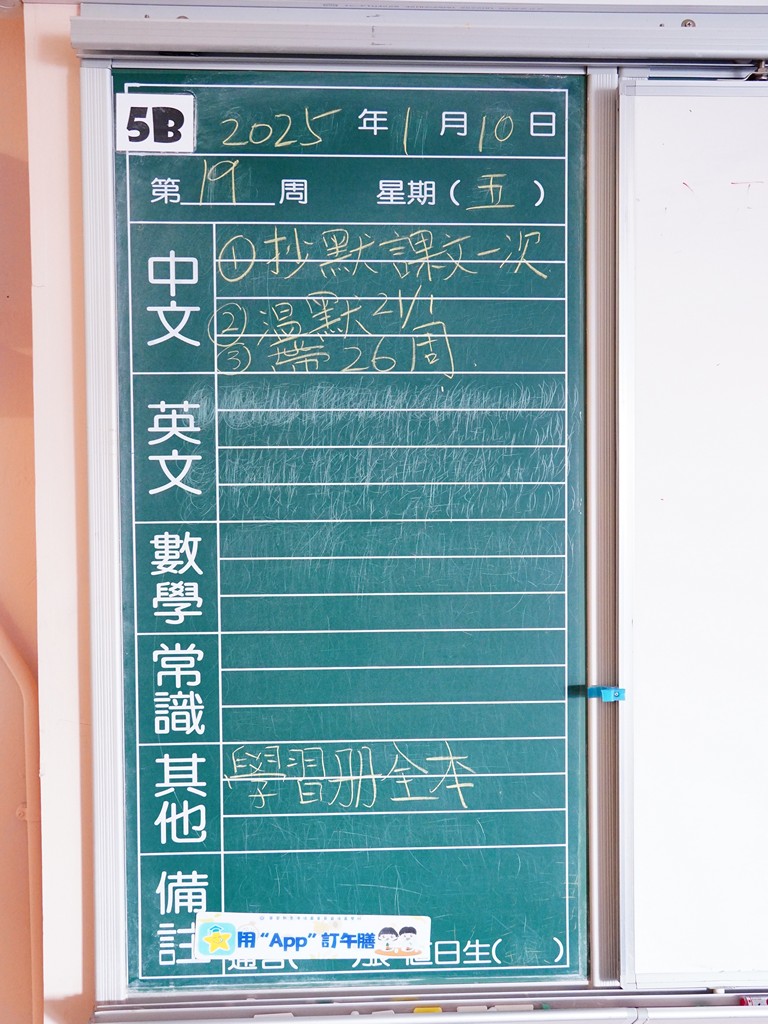 5B 2025年1月10日
第19周 星期(五)
中文
①抄默課文一次
②溫默21/1
③帶26周
英文
數學
常識
其他
學習册全本
備註
用“App”訂午膳
值日生( )